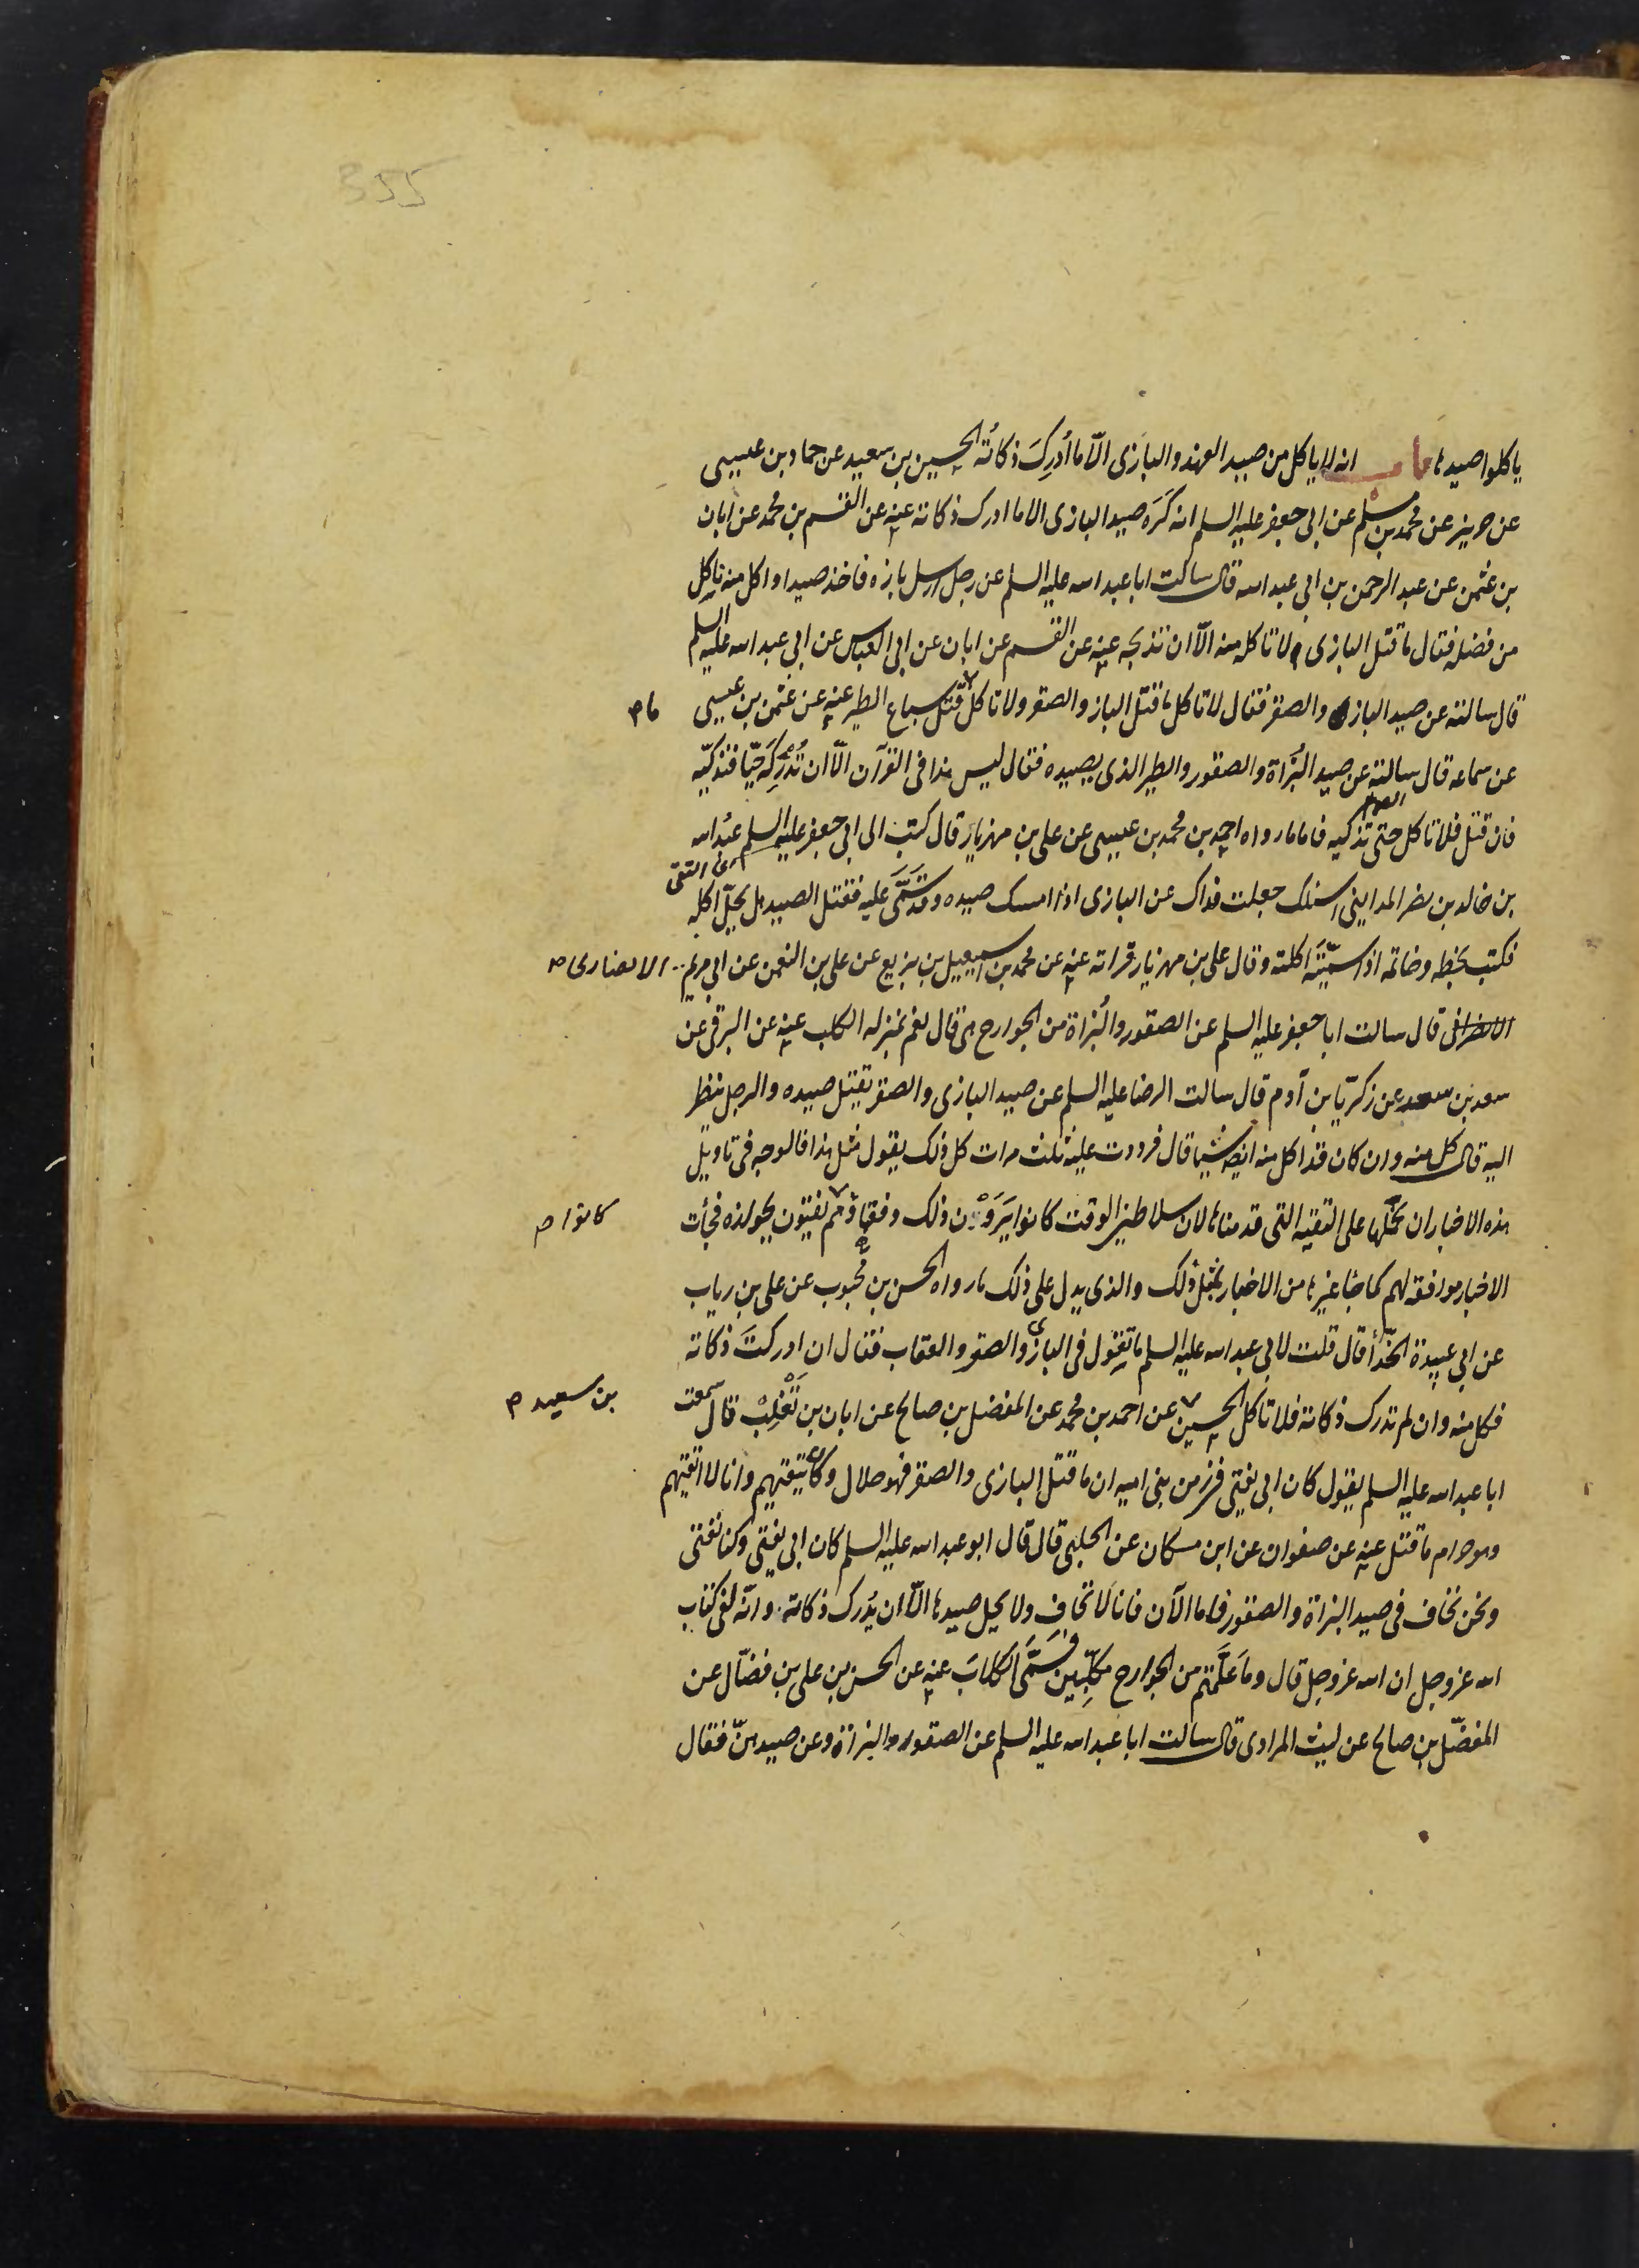 355
ياكلوا صيدها باب انه لا ياكل من صيد الفهد والبازى الّا ما أُدرِكَ ذكاتُه الحسين بن سعيد عن حماد بن عيسى
عن حريز عن محمد بن مسلم عن ابى جعفر عليه السلم انه كَرَه صيد البازى الا ما ادرك ذكاته عنه عن القسم بن محمد عن ابان
بن عثمن عن عبد الرحمن بن ابى عبد الله قال سالت ابا عبد الله عليه السلم عن رجل ارسل بازه فاخذ صيدا واكل منه ناكل
من فضله فقال ما قتل البازى فلا تاكله منه الّا ان تذبحه عنه عن القسم عن ابان عن ابى العباس عن ابى عبد الله عليه السلم
قال سالته عن صيد البازى والصقر فقال لا تاكل ما قتل الباز والصقر ولا تاكل قَتَلَ سباع الطير عنه عن عثمن بن عيسى
ما م
عن سماعه قال سالته عن صيد البُزاة والصقور والطير الذى يصيده فقال ليس هذا فى القرآن الّا ان تُدْرِكَه حيّا فتذكيّه
فان قتل فلا تاكل حتى تذكيه فاما ما رواه احمد بن محمد بن عيسى عن على بن مهزيار قال كتب الى ابى جعفر عليه السلم عبد الله
اى التقى
بن خالد بن نصر المداينى اسئلك جعلت فداك عن البازى اذا امسك صيده وقد سَمَّى عليه فقتل الصيد هل يحلّ اكله
فكتب بخطه وخاتمه اذا سمّيتَه اكلته وقال على بن مهزيار قراته عنه عن محمد بن اسمعيل بن بزيع عن على بن النعمن عن ابى مريم
الانصارى م
قال سالت ابا جعفر عليه السلم عن الصقور والبُزاة من الجوارح هى قال نعم بمنزله الكلب عنه عن البرقى عن
سعد بن سعد عن زكريّا بن آدم قال سالت الرضا عليه السلم عن صيد البازى والصقر يقتل صيده والرجل ينظر
اليه قال كل منه وان كان قد اكل منه ايضا شيا قال فرددت عليه ثلث مرات كل ذلك يقول مثل هذا فالوجه فى تاويل
هذه الاخبار ان نحملها على التقيه التى قدمناها لان سلاطين الوقت كانوا يَرَوْن ذلك وفقهاؤهم يفتون بجوازه فجأت
كانوا م
الاخبار موافقه لهم كما جا غيرها من الاخبار بمثل ذلك والذى يدل على ذلك ما رواه الحسن بن محبوب عن على بن رياب
عن ابى عبيدة الحذّاء قال قلت لابى عبد الله عليه السلم ما تقول فى البازى والصقر والعقاب فقال ان ادركتَ ذكاته
فكل منه وان لم تدرك ذكاته فلا تاكل الحسين عن احمد بن محمد عن المفضل بن صالح عن ابان بن تَغْلِبْ قال سمعت
بن سعيد م
ابا عبد الله عليه السلم يقول كان ابى يفتى فى زمن بنى اميه ان ما قتل البازى والصقر فهو حلال وكان يتقيهم وانا لا اتقيهم
وهو حرام ما قتل عنه عن صفوان عن ابن مسكان عن الحلبى قال قال ابو عبد الله عليه السلم كان ابى يفتى وكنا نفتى
ونحن نخاف فى صيد البزاة والصقور فاما الآن فانا لا نخاف ولا يحل صيدها الّا ان يُدرك ذكاته وانّه لفى كتاب
الله عز وجل ان الله عز وجل قال وما عَلَّمتم من الجوارح مكلّبِين فسَمَّى الكلابَ عنه عن الحسن بن على بن فضّال عن
المفضّل بن صالح عن ليث المرادى قال سالت ابا عبد الله عليه السلم عن الصقور والبزاة وعن صيدهنّ فقال